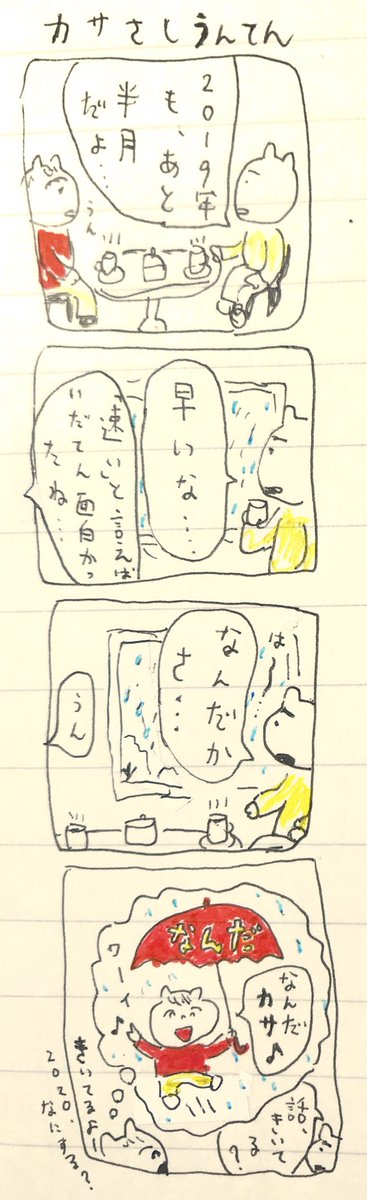 カサさしうんてん
2019年
も、あと
半月
だよ…
うん
早いな…
「速い」と言えば
いだてん面白かっ
たね…
は〜
なんだか
さ…
うん
なんだ
なんだ
カサ♪
ワーイ♪
話、きいて
る?
きいてるよー
2020、
なにする?